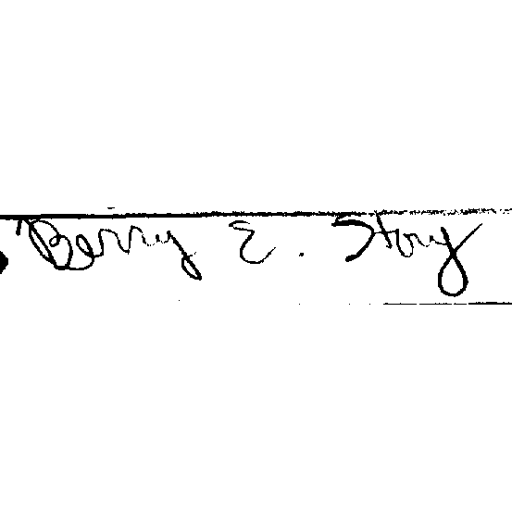 Berry E. Story